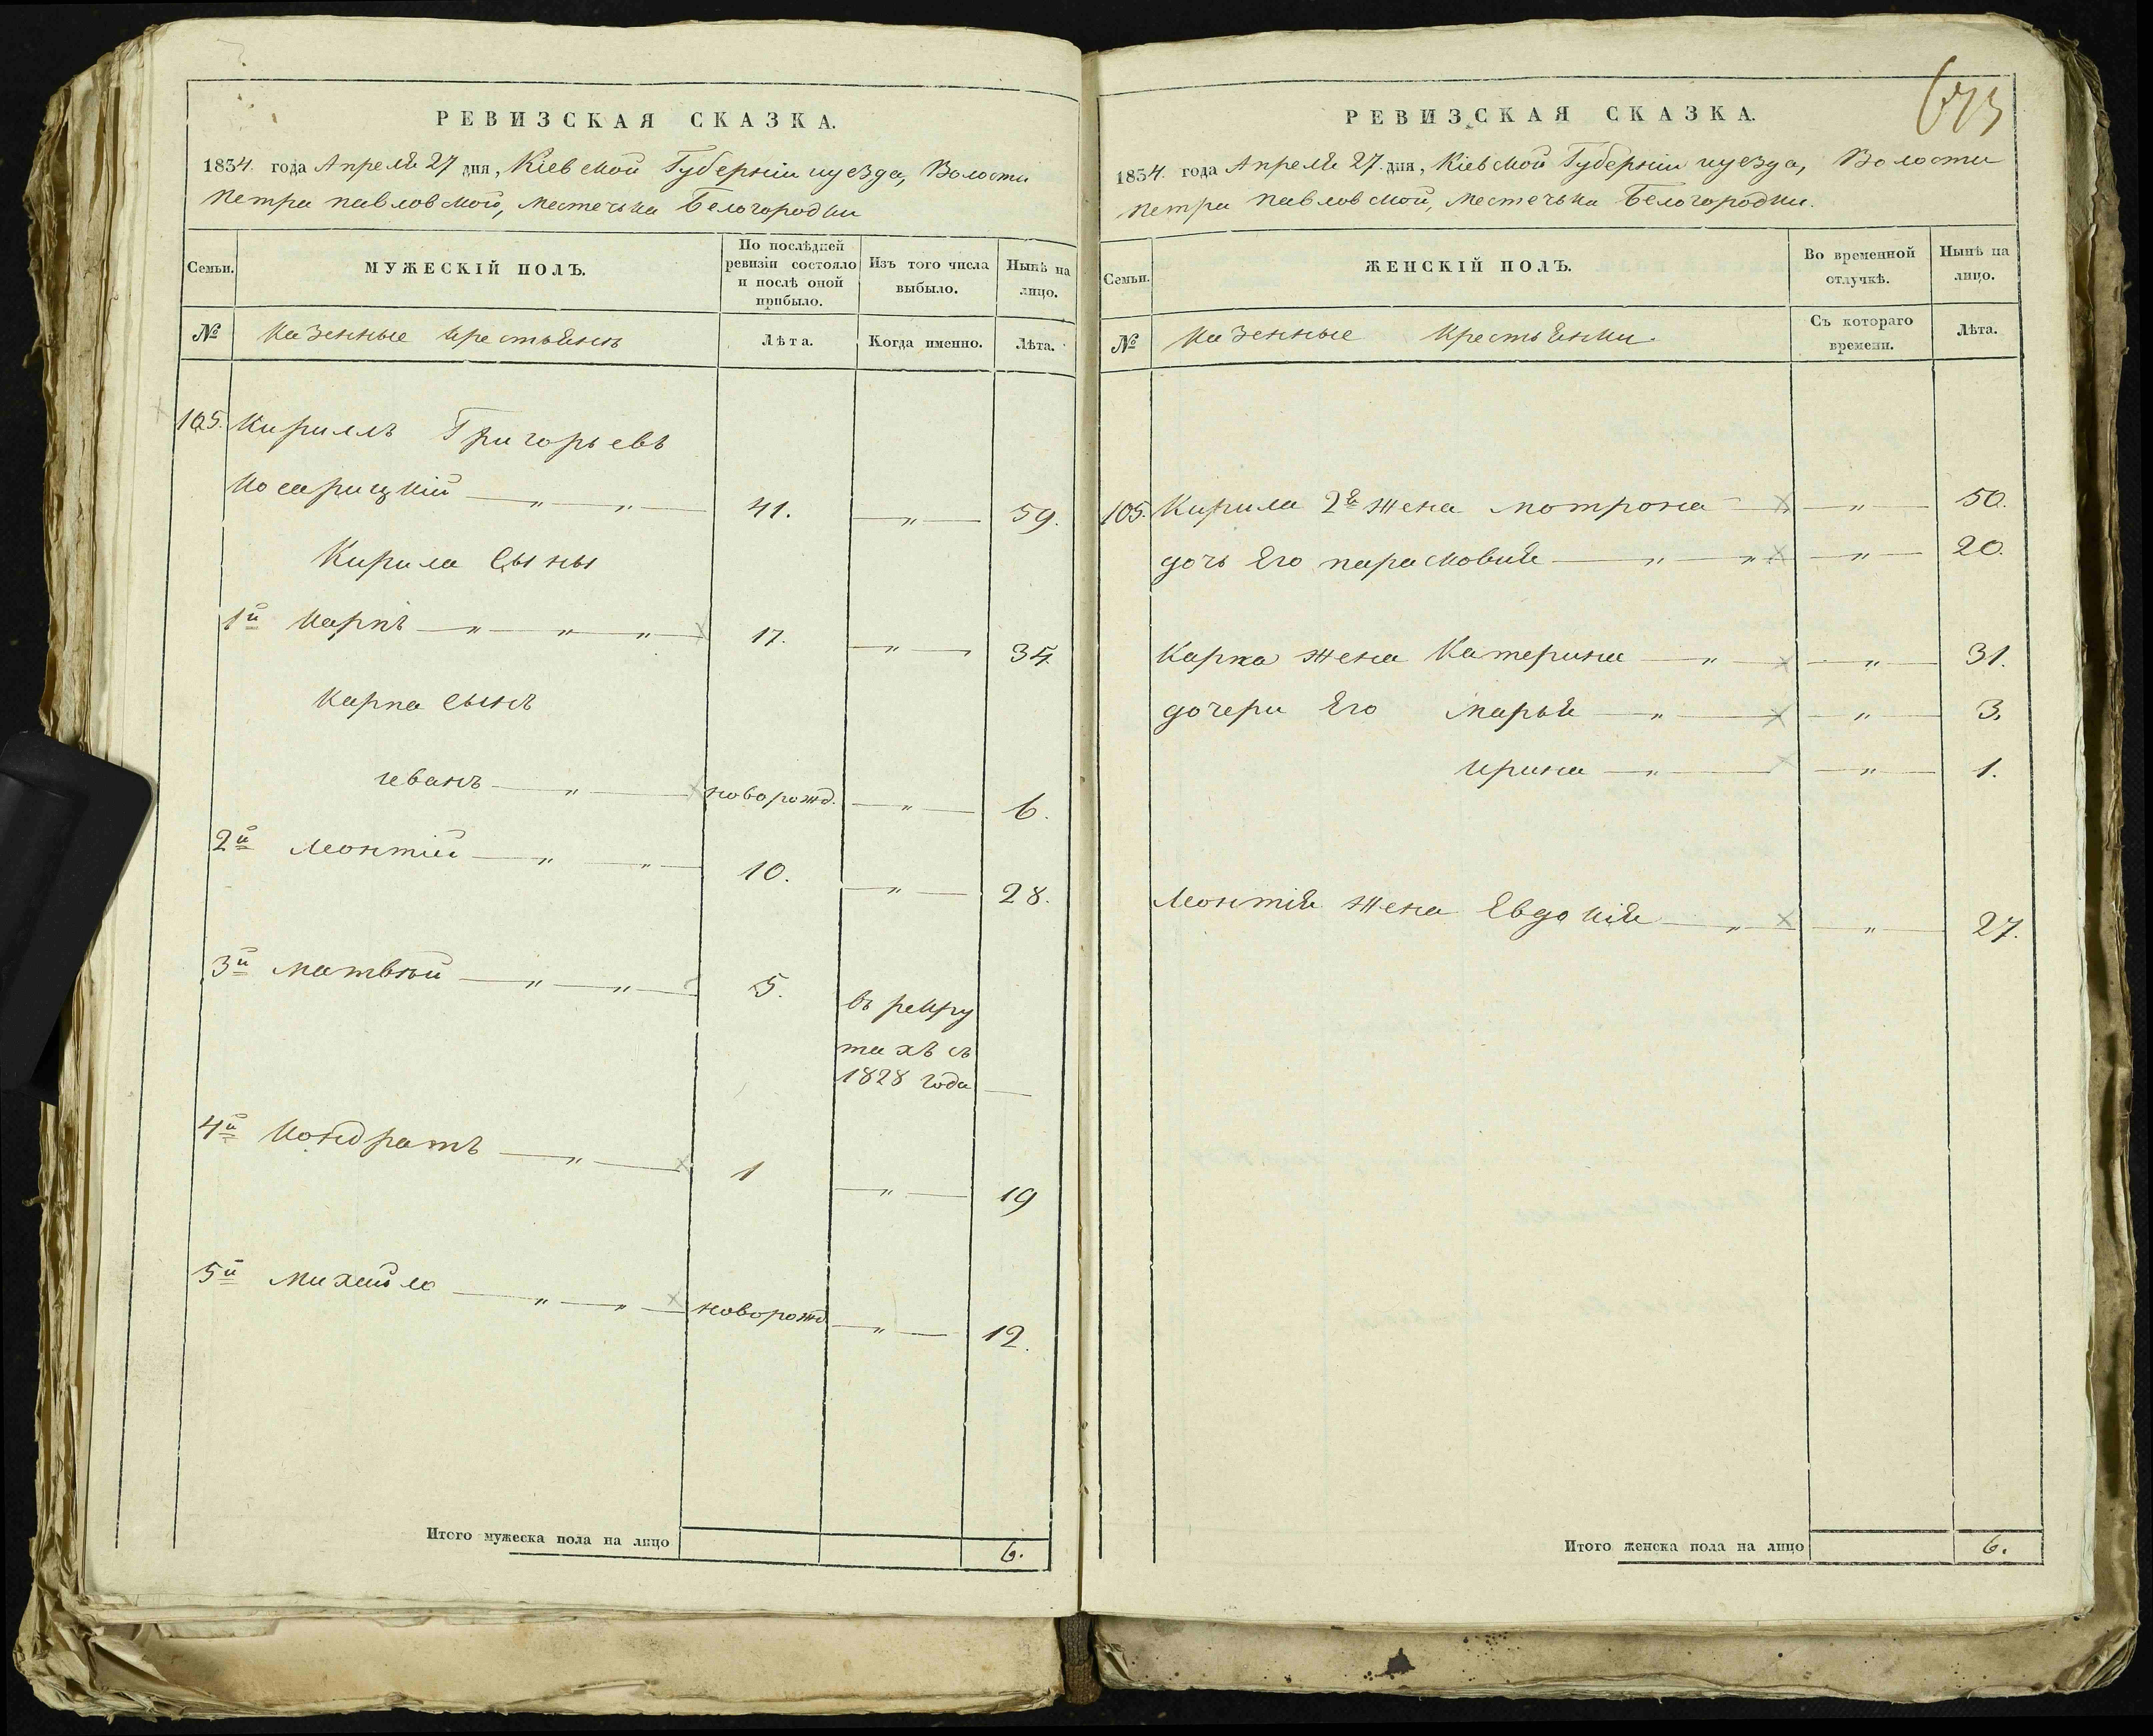 РЕВИЗСКАЯ СКАЗКА.
1834. года Апреля 27 дня, Кіевской Губерніи и уезда, Волости
Петра павловской, местечька Белогородки
Семьи.
МУЖЕСКІЙ ПОЛЪ.
По послѣдней ревизіи состояло и послѣ оной прибыло.
Изъ того числа выбыло.
Нынѣ на лицо.
№
Казенные крестьяне
Лѣта.
Когда именно.
Лѣта.
105. Кириллъ Григорьевъ
Косарицкій — „ — „ — 41. — „ — 59.
Кирила Сыны
1й Карпъ — „ — „ — „ — 17. — „ — 34
Карпа сынъ
иванъ — „ — новорожд. — „ — 6.
2й Леонтій — „ — „ — 10. — „ — 28.
3й матвѣй — „ — „ — 5. въ рекру
тахъ съ
1828 года —
4й Кондратъ — „ — 1 — „ — 19
5й Михайло — „ — „ — новорожд — „ — 12.
Итого мужеска пола на лицо 6.
РЕВИЗСКАЯ СКАЗКА.
1834. года Апреля 27. дня, Кіевской Губерніи и уезда, Волости
Петра павловской, местечька Белогородки.
Семьи.
ЖЕНСКІЙ ПОЛЪ.
Во временной отлучкѣ.
Нынѣ на лицо.
№
Казенные Крестьянки.
Съ котораго времени.
Лѣта.
105. Кирила 2я жена мотрона — „ — 50.
дочь Его парасковия — „ — „ — „ — 20.
Карпа жена Катерина — „ — „ — 31.
дочери Его марья — „ — „ — 3.
ирина — „ — „ — 1.
Леонтія жена Евдокія — „ — „ — 27.
Итого женска пола на лицо 6.